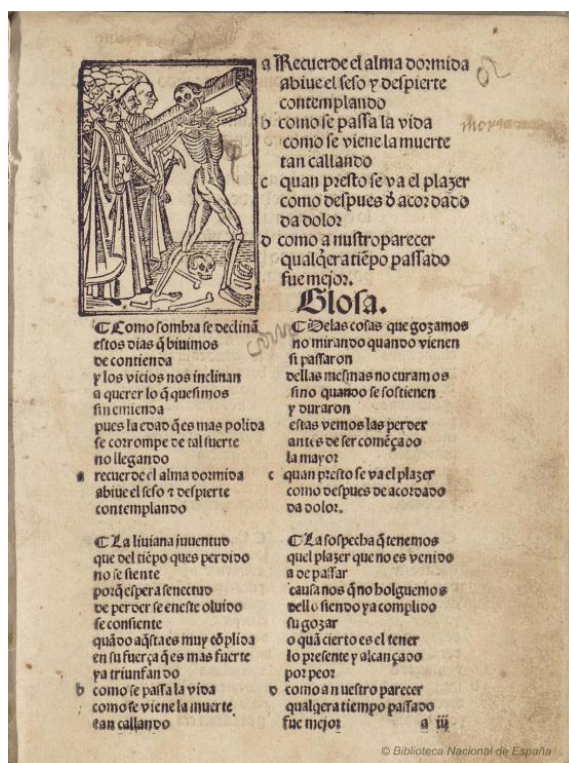 a Recuerde el alma dormida
abiue el seso y despierte
contemplando
b como se passa la vida
como se viene la muerte
tan callando
c quan presto se va el plazer
como despues đ acordado
da dolor
d como a nustro parecer
qualq̃era tiẽpo passado
fue mejor.
Glosa.
☾ Como sombra se declinã
estos dias q̃ biuimos
de contienda
y los vicios nos inclinan
a querer lo q̃ quesimos
sin emienda
pues la edad q̃ es mas polida
se corrompe de tal suerte
no llegando
a recuerde el alma dormida
abiue el seso ⁊ despierte
contemplando
☾ La liuiana juuentud
que del tiẽpo ques perdido
no se siente
porq̃ espera senectud
de perder se eneste oluido
se consiente
quãdo aq̃sta es muy cõplida
en su fuerça q̃ es mas fuerte
ya triunfando
b como se passa la vida
como se viene la muerte
tan callando
☾ Delas cosas que gozamos
no mirando quando vienen
si passaron
dellas mesmas no curamos
sino quando se sostienen
y duraron
estas vemos las perder
antes de ser comẽçado
la mayor
c quan presto se va el plazer
como despues de acordado
da dolor.
☾ La sospecha q̃ tenemos
quel plazer que no es venido
a de passar
causa nos q̃ no holguemos
dello siendo ya complido
su gozar
o quã cierto es el tener
lo presente y alcançado
por peor
d como a nuestro parecer
qualq̃era tiempo passado
fue mejor
a iij
© Biblioteca Nacional de España